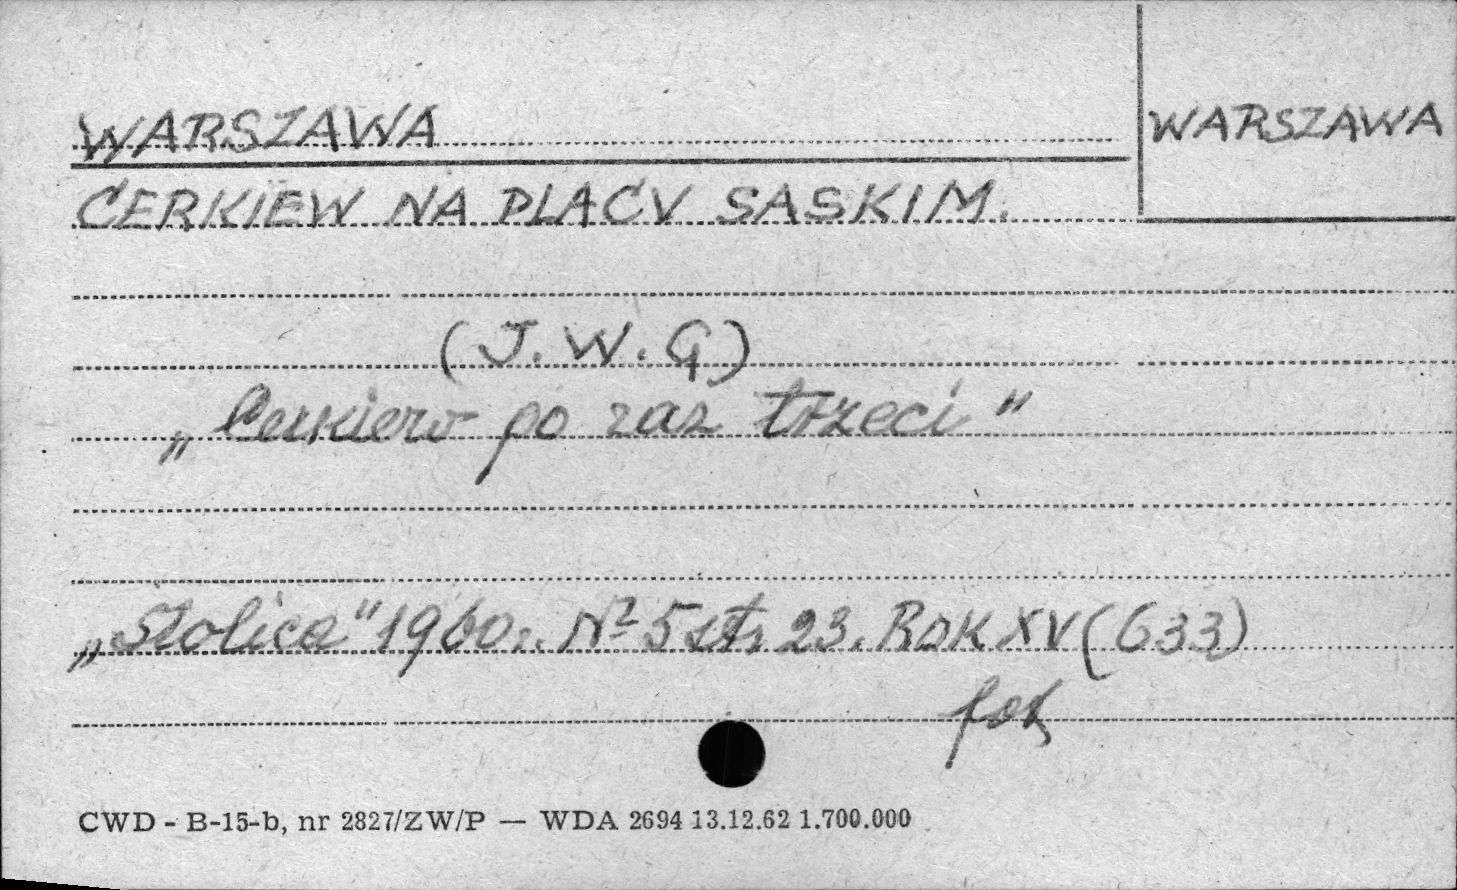 WARSZAWA
WARSZAWA
CERKIEW NA PLACU SASKIM.
(J. W. G)
„Cerkiew po raz trzeci"
„Stolica" 1960r. Nº 5 str. 23. ROK XV (633)
fot
CWD - B-15-b, nr 2827/ZW/P — WDA 2694 13.12.62 1.700.000